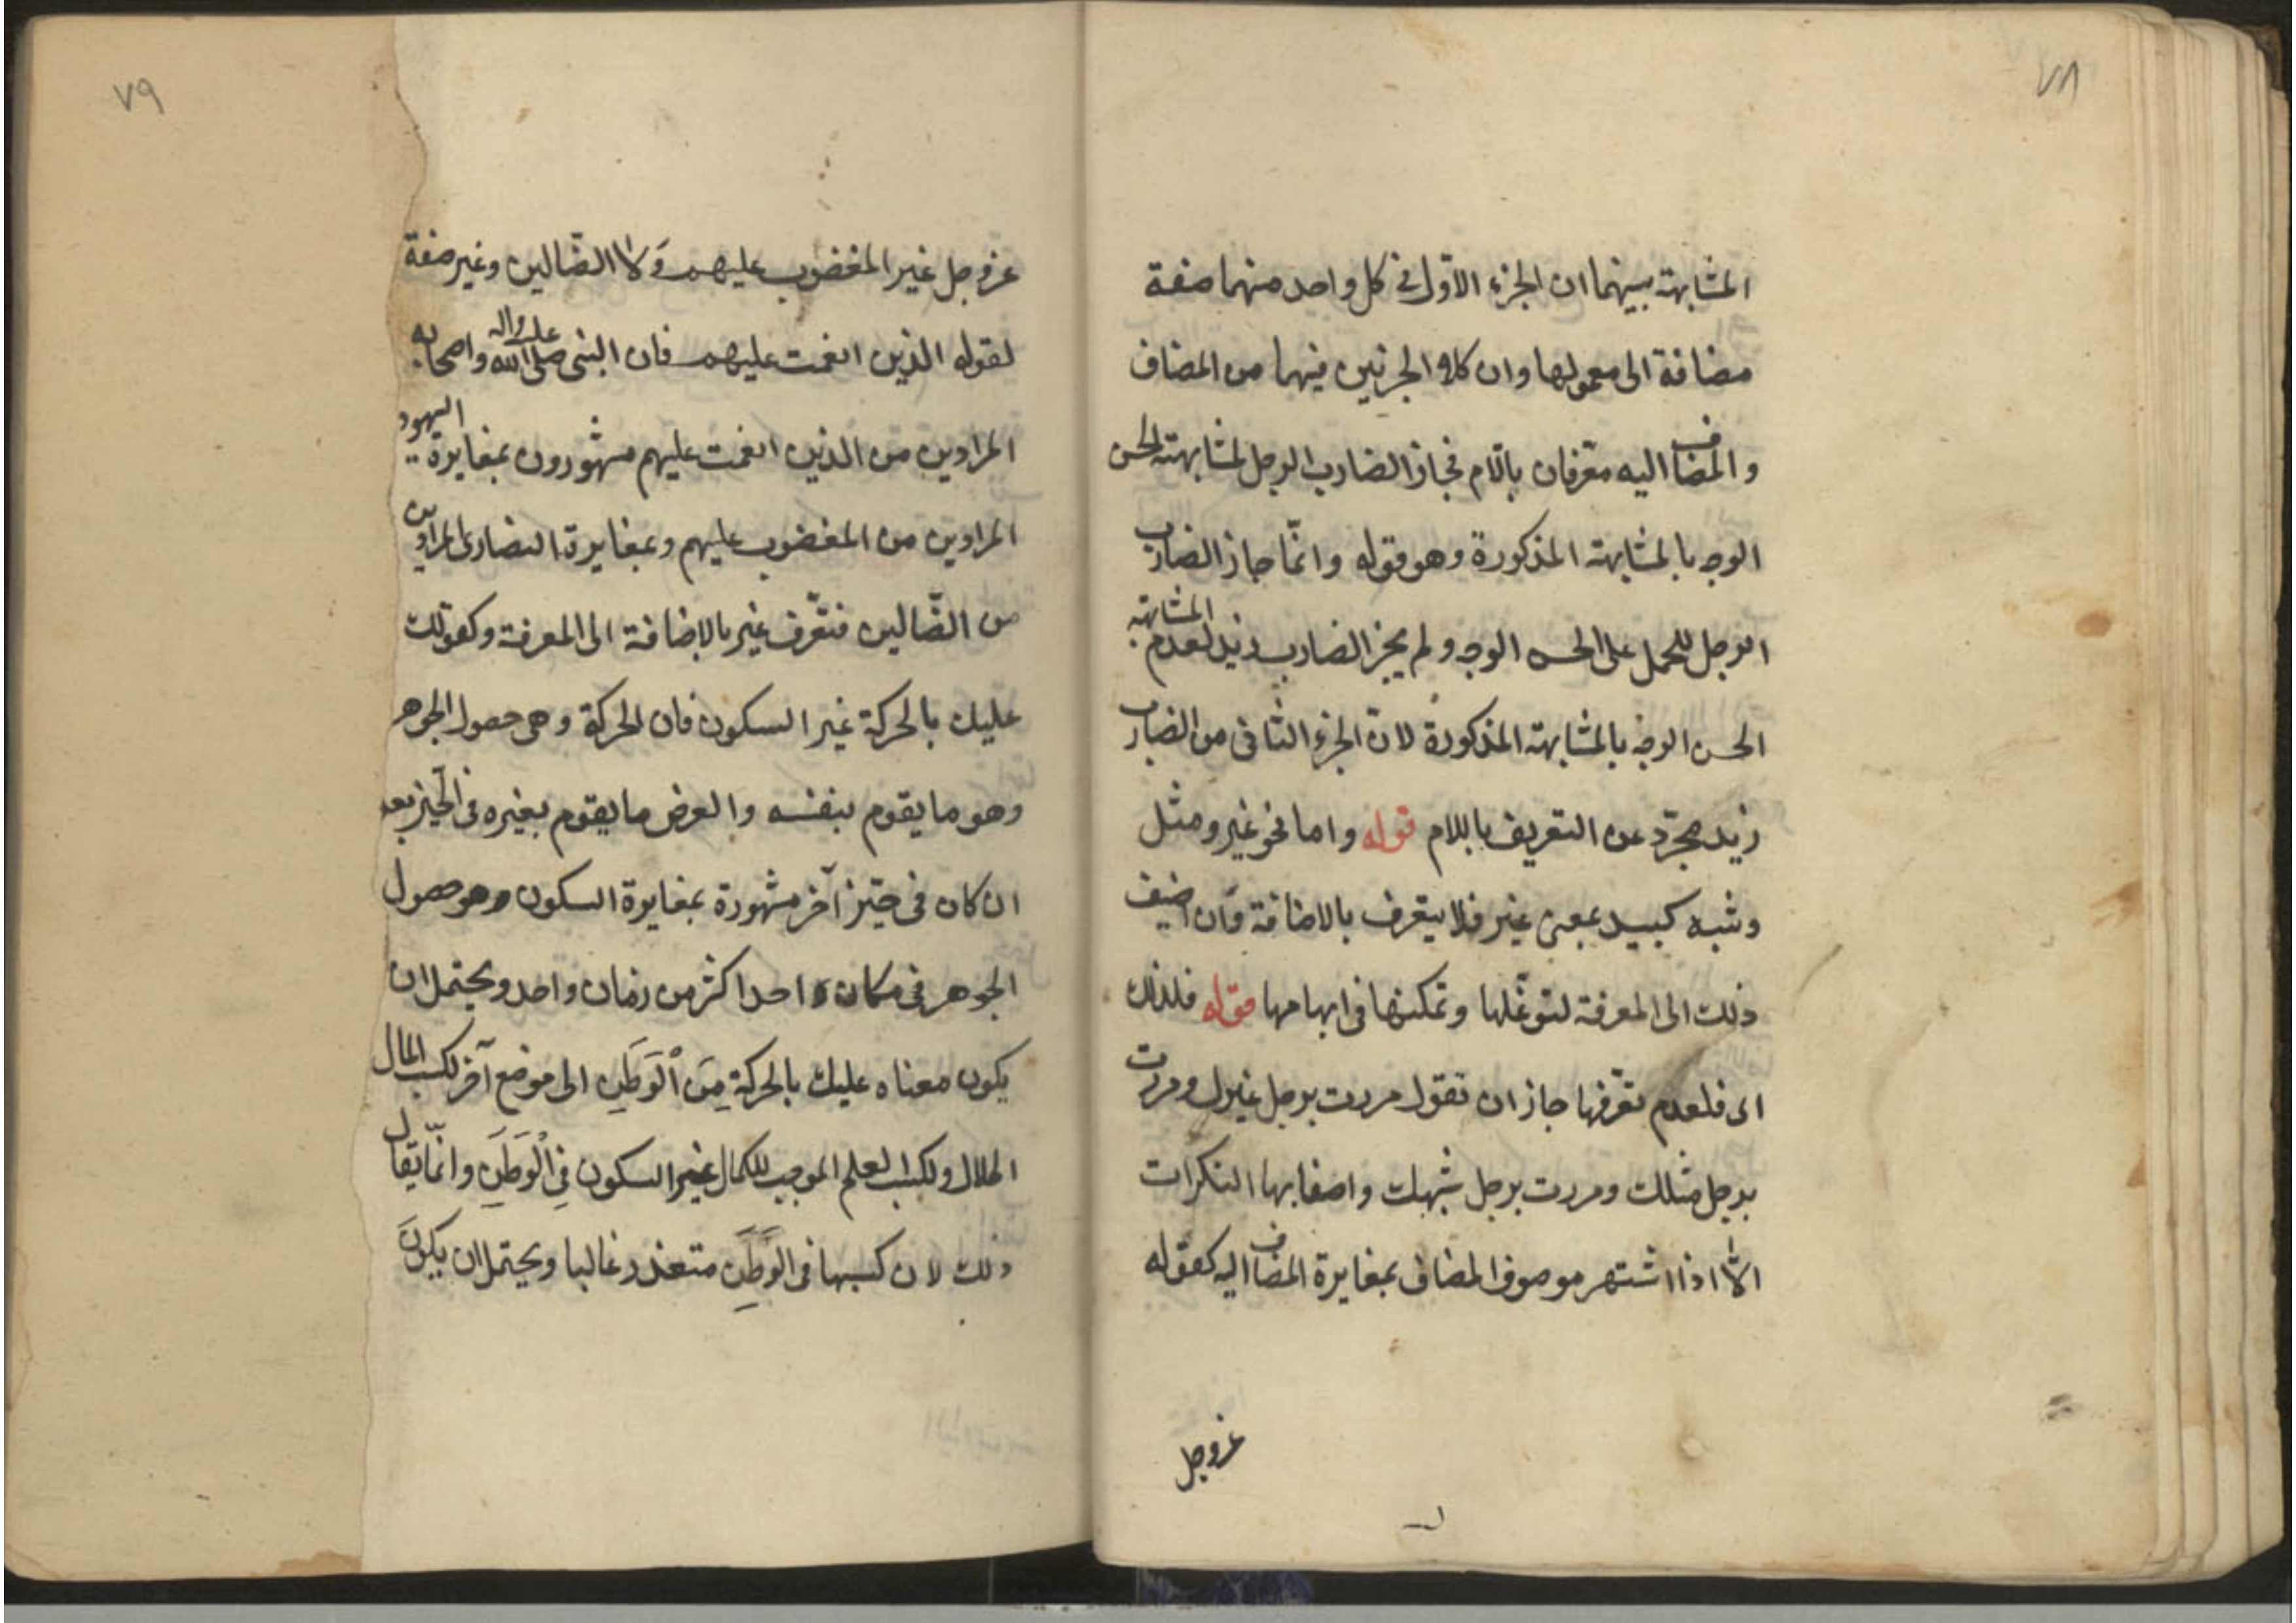 ٧٨
المشابهة بينهما ان الجزء الاوّل فى كل واحد منهما صفة
مضافة الى معمولها وان كلا الجزئين فيهما من المضاف
والمضاف اليه معرفان باللام فجاز الضارب الرجل لمشابهته الحسن
الوجه بالمشابهة المذكورة وهو قوله وانّما جاز الضارب
الرجل للحمل على الحسن الوجه ولم يجز الضارب زيد لعدم المشابهة
الحسن الوجه بالمشابهة المذكورة لانّ الجزء الثانى من الضارب
زيد مجرّد عن التعريف باللام قوله واما نحو غير ومثل
وشبه كبيد بمعنى غير فلا يتعرف بالاضافة وان اضيف
ذلك الى المعرفة لتوغّلها وتمكنها فى ابهامها قوله فلذلك
اى فلعدم تعرّفها جاز ان تقول مررت برجل غيرك ومررت
برجل مثلك ومررت برجل شبهك واصفا بها النكرات
الّا اذا اشتهر موصوف المضاف بمغايرة المضاف اليه كقوله
عزوجل
٧٩
عزوجل غير المغضوب عليهم وَلا الضّالين وغير صفة
لقوله الذين انعمت عليهم فان النبى صلى الله عليه واله واصحابه
المرادين من الذين انعمت عليهم مشهورون بمغايرة اليهود
المرادين من المغضوب عليهم وبمغايرة النصارى المرادين
من الضّالين فتعّرف غير بالاضافة الى المعرفة وكقولك
عليك بالحركة غير السكون فان الحركة وهى حصول الجوهر
وهو ما يقوم بنفسه والعرض ما يقوم بغيره فى الحيّز بعد
ان كان فى حيّز آخر مشهورة بمغايرة السكون وهو حصول
الجوهر فى مكان واحد اكثر من زمان واحد ويحتمل ان
يكون معناه عليك بالحركة مِنَ ٱلْوَطَنِ الى موضع آخر لكسب المال
الحلال ولكسب العلم الموجب للكمال غير السكون فِى ٱلْوَطَنِ وانّما يقال
ذلك لان كسبها فى الوَطَنِ متعذر غالبا ويحتمل ان يكونَ